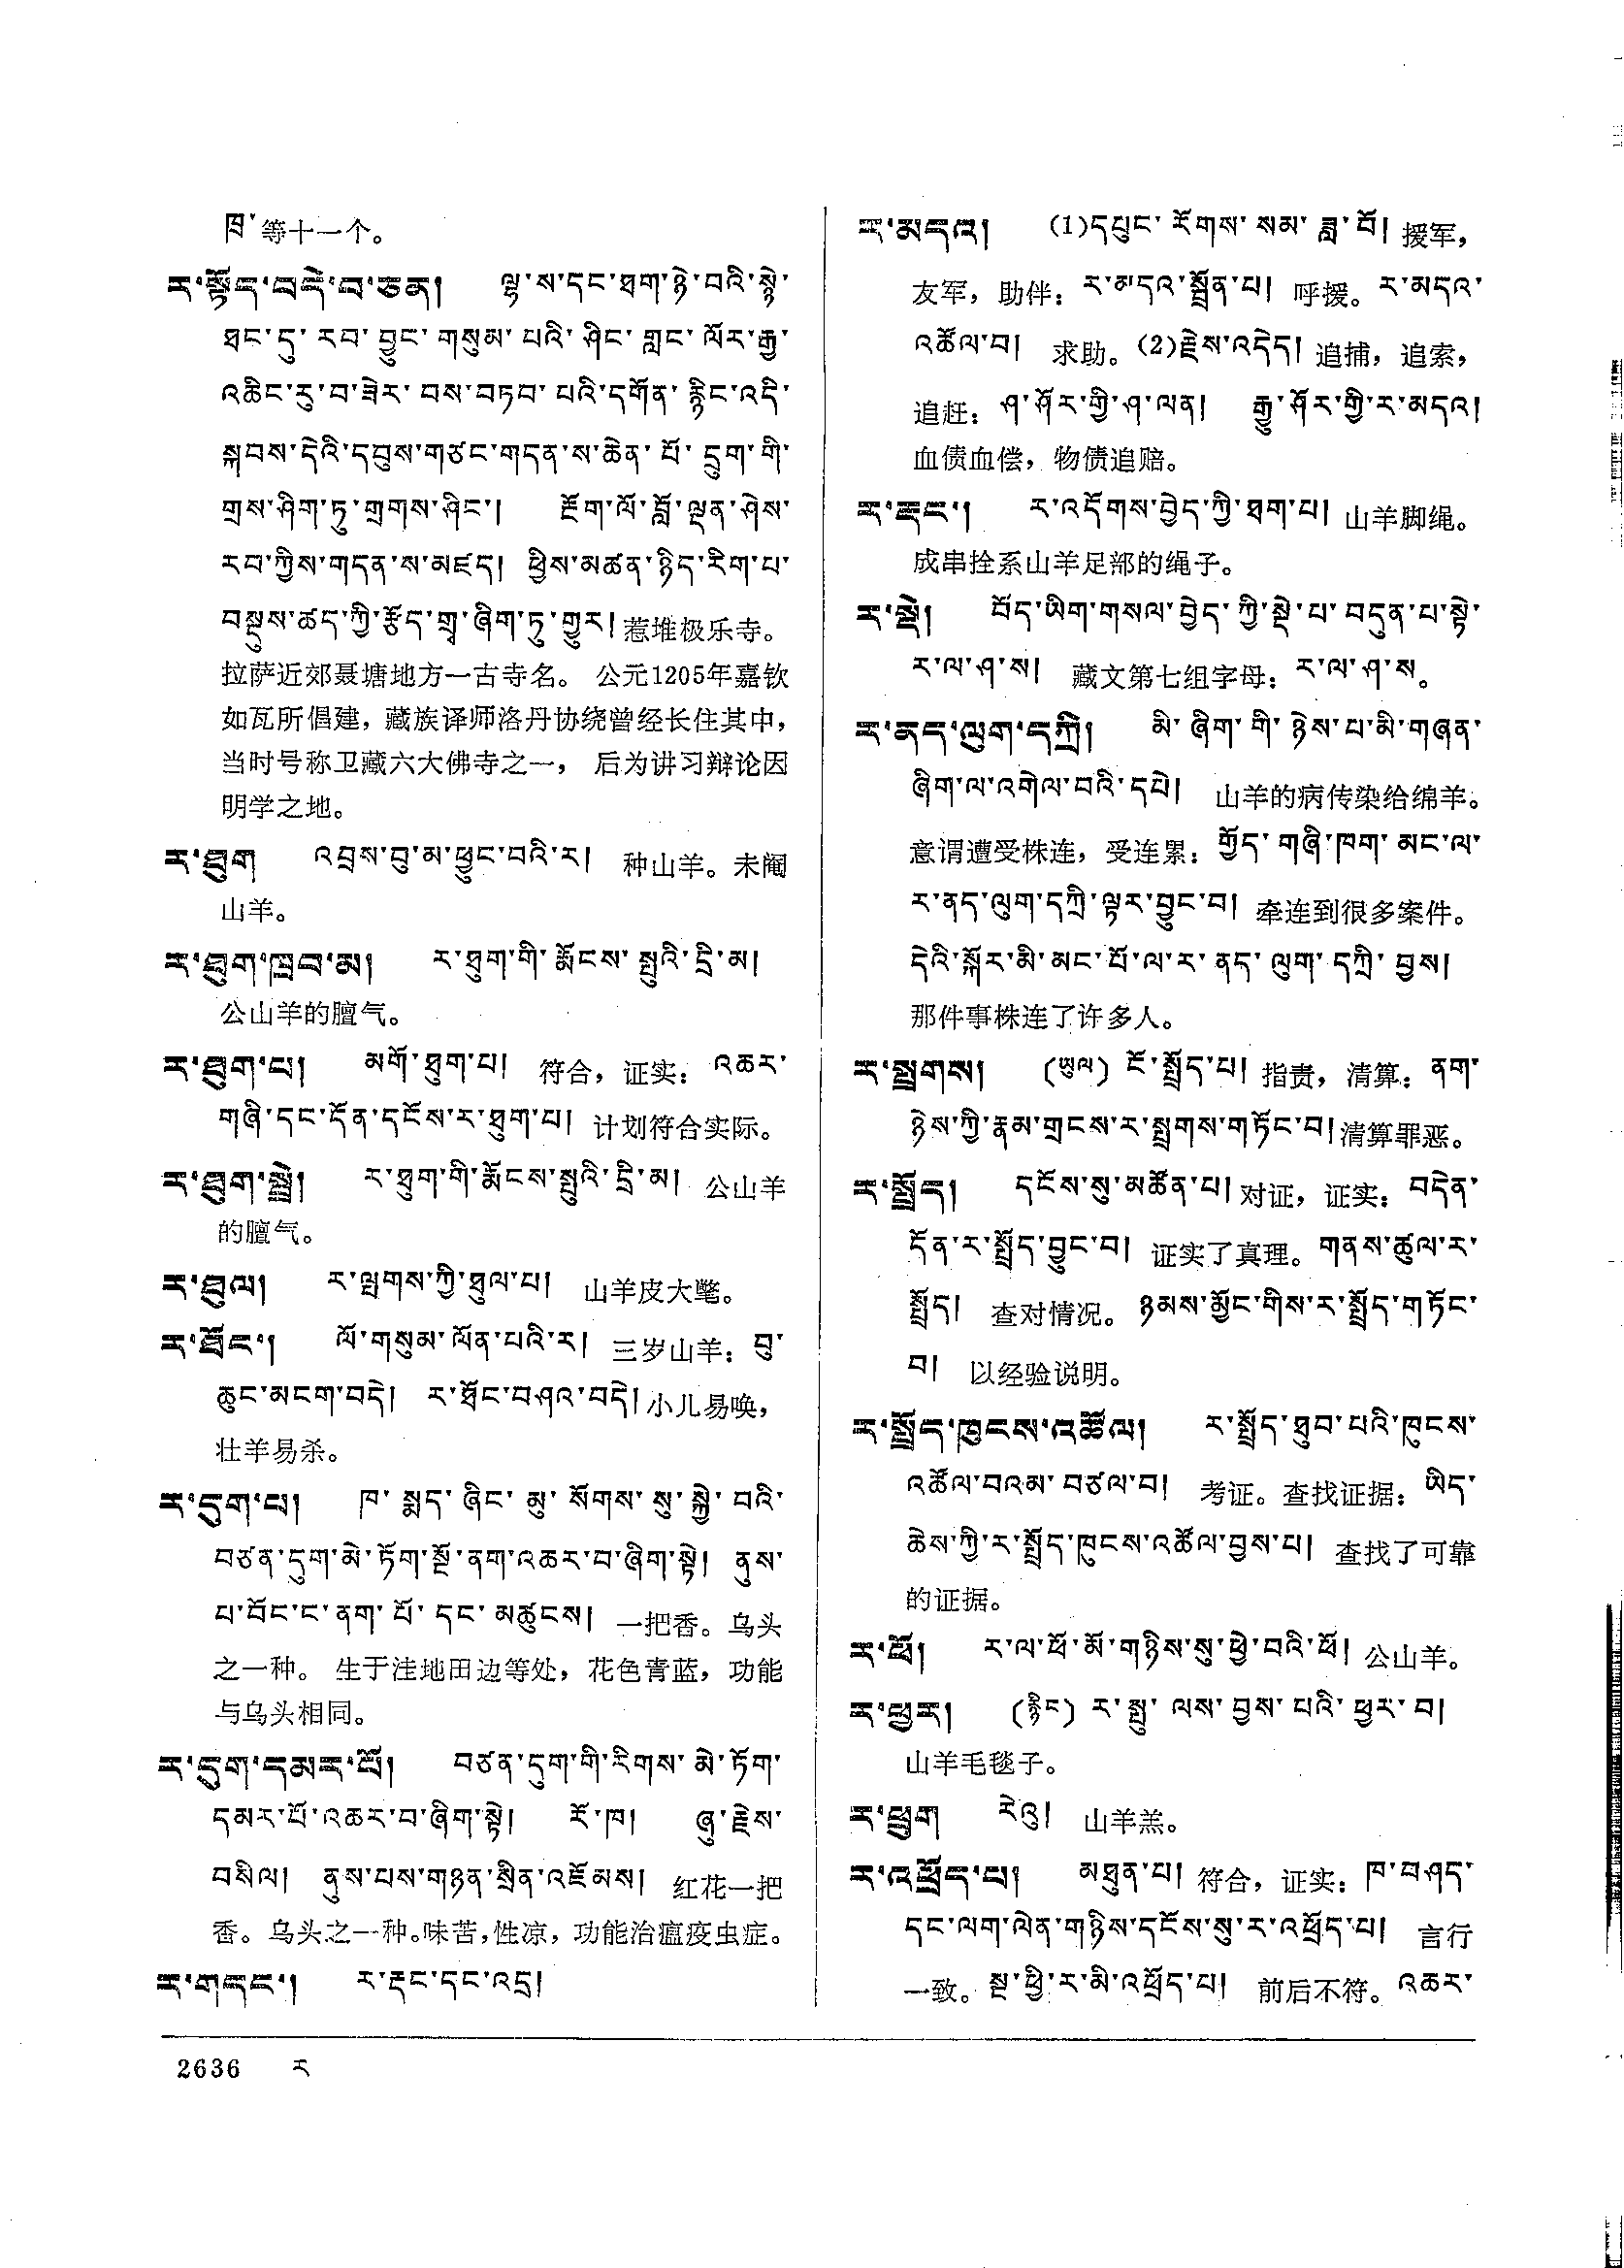 ཁ་等十一个。
ར་སྟོད་བདེ་བ་ཅན། ལྷ་ས་དང་ཐག་ཉེ་བའི་སྙེ་
ཐང་དུ་ རབ་ བྱུང་ གསུམ་ པའི་ ཤིང་ གླང་ ལོར་རྒྱ་
འཆིང་རུ་བ་ཟེར་ བས་བཏབ་ པའི་དགོན་ རྙིང་འདི་
སྐབས་དེའི་དབུས་གཙང་གདན་ས་ཆེན་ པོ་ དྲུག་གི་
གྲས་ཤིག་ཏུ་གྲགས་ཤིང་། རྔོག་ལོ་བློ་ལྡན་ཤེས་
རབ་ཀྱིས་གདན་ས་མཛད། ཕྱིས་མཚན་ཉིད་རིག་པ་
བསྡུས་ཚད་ཀྱི་རྩོད་གྲྭ་ཞིག་ཏུ་གྱུར།惹堆极乐寺。
拉萨近郊聂塘地方一古寺名。公元1205年嘉钦
如瓦所倡建，藏族译师洛丹协绕曾经长住其中，
当时号称卫藏六大佛寺之一，后为讲习辩论因
明学之地。
ར་ཐུག འབྲས་བུ་མ་ཕྱུང་བའི་ར། 种山羊。未阉
山羊。
ར་ཐུག་ཁྲབ་མ། ར་ཐུག་གི་རྨོངས་ སྤྲུའི་དྲི་མ།
公山羊的膻气。
ར་ཐུག་པ། མགོ་ཐུག་པ། 符合，证实：འཆར་
གཞི་དང་དོན་དངོས་ར་ཐུག་པ། 计划符合实际。
ར་ཐུག་སྦྲེ། ར་ཐུག་གི་རྨོངས་སྤྲུའི་དྲི་མ། 公山羊
的膻气。
ར་ཐུལ། ར་ལྤགས་ཀྱི་ཐུལ་པ། 山羊皮大氅。
ར་ཐོང་། ལོ་གསུམ་ལོན་པའི་ར། 三岁山羊：བུ་
ཆུང་མངག་བདེ། ར་ཐོང་བཤའ་བདེ།小儿易唤，
壮羊易杀。
ར་དུག་པ། ཁ་ སྨད་ ཞིང་ མུ་ སོགས་ སུ་ སྐྱེ་ བའི་
བཙན་དུག་མེ་ཏོག་སྔོ་ནག་འཆར་བ་ཞིག་སྟེ། ནུས་
པ་བོང་ང་ནག་ པོ་ དང་ མཚུངས། 一把香。乌头
之一种。生于洼地田边等处，花色青蓝，功能
与乌头相同。
ར་དུག་དམར་པོ། བཙན་དུག་གི་རིགས་ མེ་ཏོག་
དམར་པོ་འཆར་བ་ཞིག་སྟེ། རོ་ཁ། ཞུ་རྗེས་
བསིལ། ནུས་པས་གཉན་སྲིན་འཇོམས། 红花一把
香。乌头之一种。味苦，性凉，功能治瘟疫虫症。
ར་གདང་། ར་རྡང་དང་འདྲ།
ར་མདའ། (1)དཔུང་ རོགས་ སམ་ ཟླ་ བོ། 援军，
友军，助伴：ར་མདའ་སྤྲོན་པ། 呼援。ར་མདའ་
འཚོལ་བ། 求助。(2)རྗེས་འདེད། 追捕，追索，
追赶：ཤ་ཤོར་གྱི་ཤ་ལན། རྒྱུ་ཤོར་གྱི་ར་མདའ།
血债血偿，物债追赔。
ར་རྡང་། ར་འདོགས་བྱེད་ཀྱི་ཐག་པ། 山羊脚绳。
成串拴系山羊足部的绳子。
ར་སྡེ། བོད་ཡིག་གསལ་བྱེད་ཀྱི་སྡེ་པ་བདུན་པ་སྟེ་
ར་ལ་ཤ་ས། 藏文第七组字母：ར་ལ་ཤ་ས。
ར་ནད་ལུག་དཀྲི། མི་ ཞིག་ གི་ ཉེས་པ་མི་གཞན་
ཞིག་ལ་འགེལ་བའི་དཔེ། 山羊的病传染给绵羊。
意谓遭受株连，受连累：གྱོད་ གཞི་ཁག་ མང་ལ་
ར་ནད་ལུག་དཀྲི་ལྟར་བྱུང་བ། 牵连到很多案件。
དེའི་སྐོར་མི་མང་པོ་ལ་ར་ནད་ ལུག་ དཀྲི་ བྱས།
那件事株连了许多人。
ར་སྤྲགས། (ཡུལ) ངོ་སྤྲོད་པ། 指责，清算：ནག་
ཉེས་ཀྱི་རྣམ་གྲངས་ར་སྤྲགས་གཏོང་བ།清算罪恶。
ར་སྤྲོད། དངོས་སུ་མཚོན་པ།对证，证实：བདེན་
དོན་ར་སྤྲོད་བྱུང་བ། 证实了真理。གནས་ཚུལ་ར་
སྤྲོད། 查对情况。ཉམས་མྱོང་གིས་ར་སྤྲོད་གཏོང་
བ། 以经验说明。
ར་སྤྲོད་ཁུངས་འཚོལ། ར་སྤྲོད་ཐུབ་པའི་ཁུངས་
འཚོལ་བའམ་བཙལ་བ། 考证。查找证据：ཡིད་
ཆེས་ཀྱི་ར་སྤྲོད་ཁུངས་འཚོལ་བྱས་པ། 查找了可靠
的证据。
ར་ཕོ། ར་ལ་ཕོ་མོ་གཉིས་སུ་ཕྱེ་བའི་ཕོ། 公山羊。
ར་ཕྱར། (རྙིང) ར་སྤུ་ ལས་ བྱས་ པའི་ ཕྱར་ བ།
山羊毛毯子。
ར་ཕྲུག རེའུ། 山羊羔。
ར་འཕྲོད་པ། མཐུན་པ། 符合，证实：ཁ་བཤད་
དང་ལག་ལེན་གཉིས་དངོས་སུ་ར་འཕྲོད་པ། 言行
一致。སྔ་ཕྱི་ར་མི་འཕྲོད་པ། 前后不符。འཆར་
2636 ར